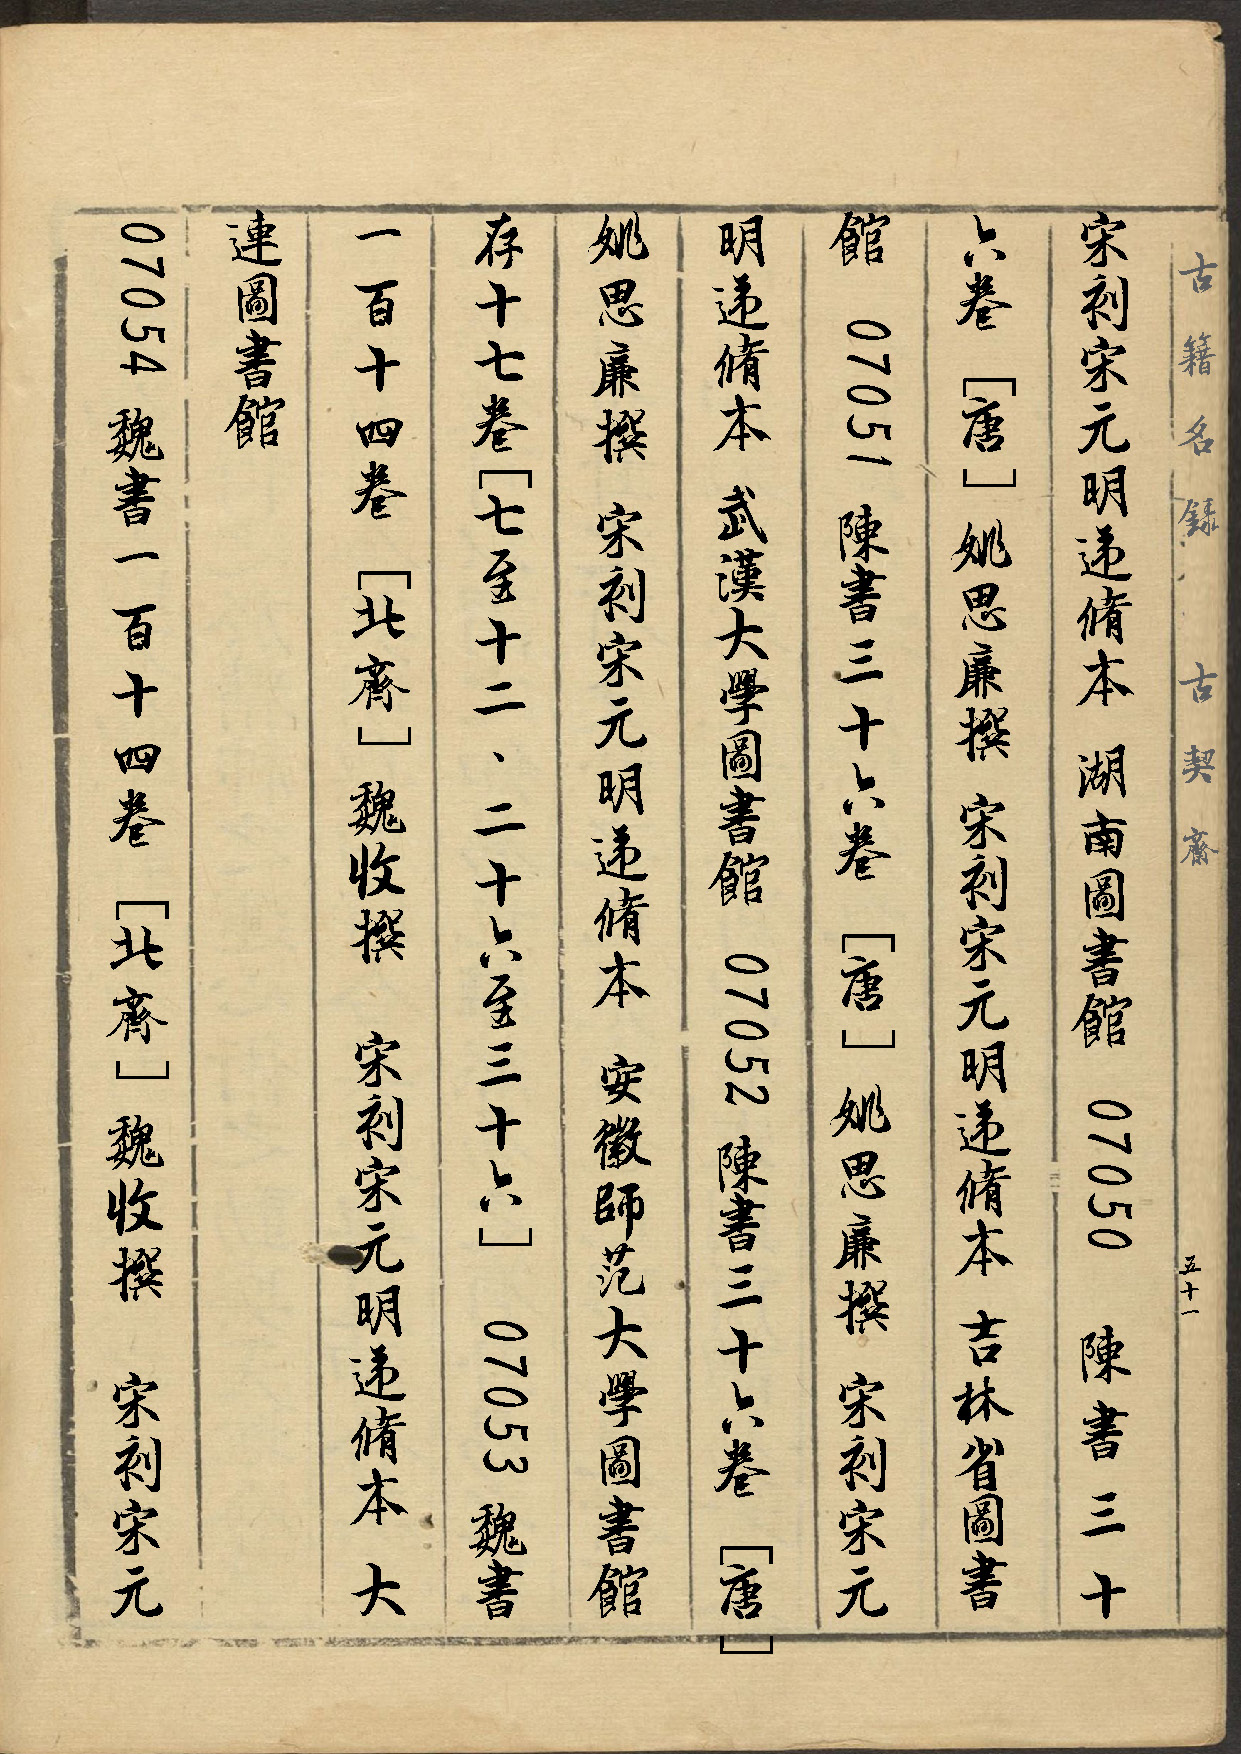 古籍名錄 古契齋
五十一
宋刻宋元明递脩本 湖南圖書館 07050 陳書三十
六卷 [唐]姚思廉撰 宋刻宋元明递脩本 吉林省圖書
館 07051 陳書三十六卷 [唐]姚思廉撰 宋刻宋元
明递脩本 武漢大學圖書館 07052 陳書三十六卷 [唐]
姚思廉撰 宋刻宋元明递脩本 安徽師范大學圖書館
存十七卷[七至十二、二十六至三十六] 07053 魏書
一百十四卷 [北齊]魏收撰 宋刻宋元明递脩本 大
連圖書館
07054 魏書一百十四卷 [北齊]魏收撰 宋刻宋元